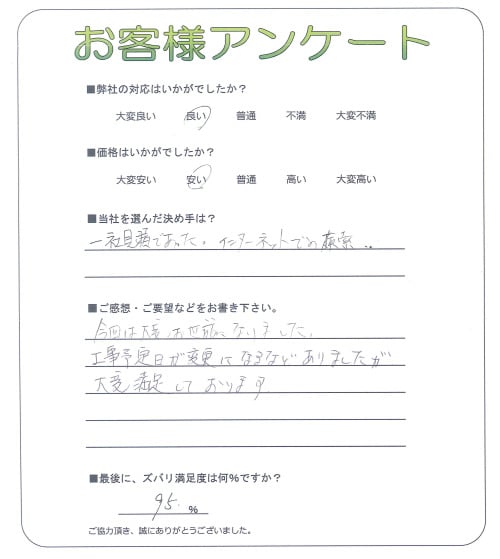 お客様アンケート
■弊社の対応はいかがでしたか？
大変良い 良い 普通 不満 大変不満
■価格はいかがでしたか？
大変安い 安い 普通 高い 大変高い
■当社を選んだ決め手は？
一社見積であった。インターネットでの検索
■ご感想・ご要望などをお書き下さい。
今回は大変お世話になりました。
工事予定日が変更になるなどありましたが
大変満足しております
■最後に、ズバリ満足度は何%ですか？
95. %
ご協力頂き、誠にありがとうございました。